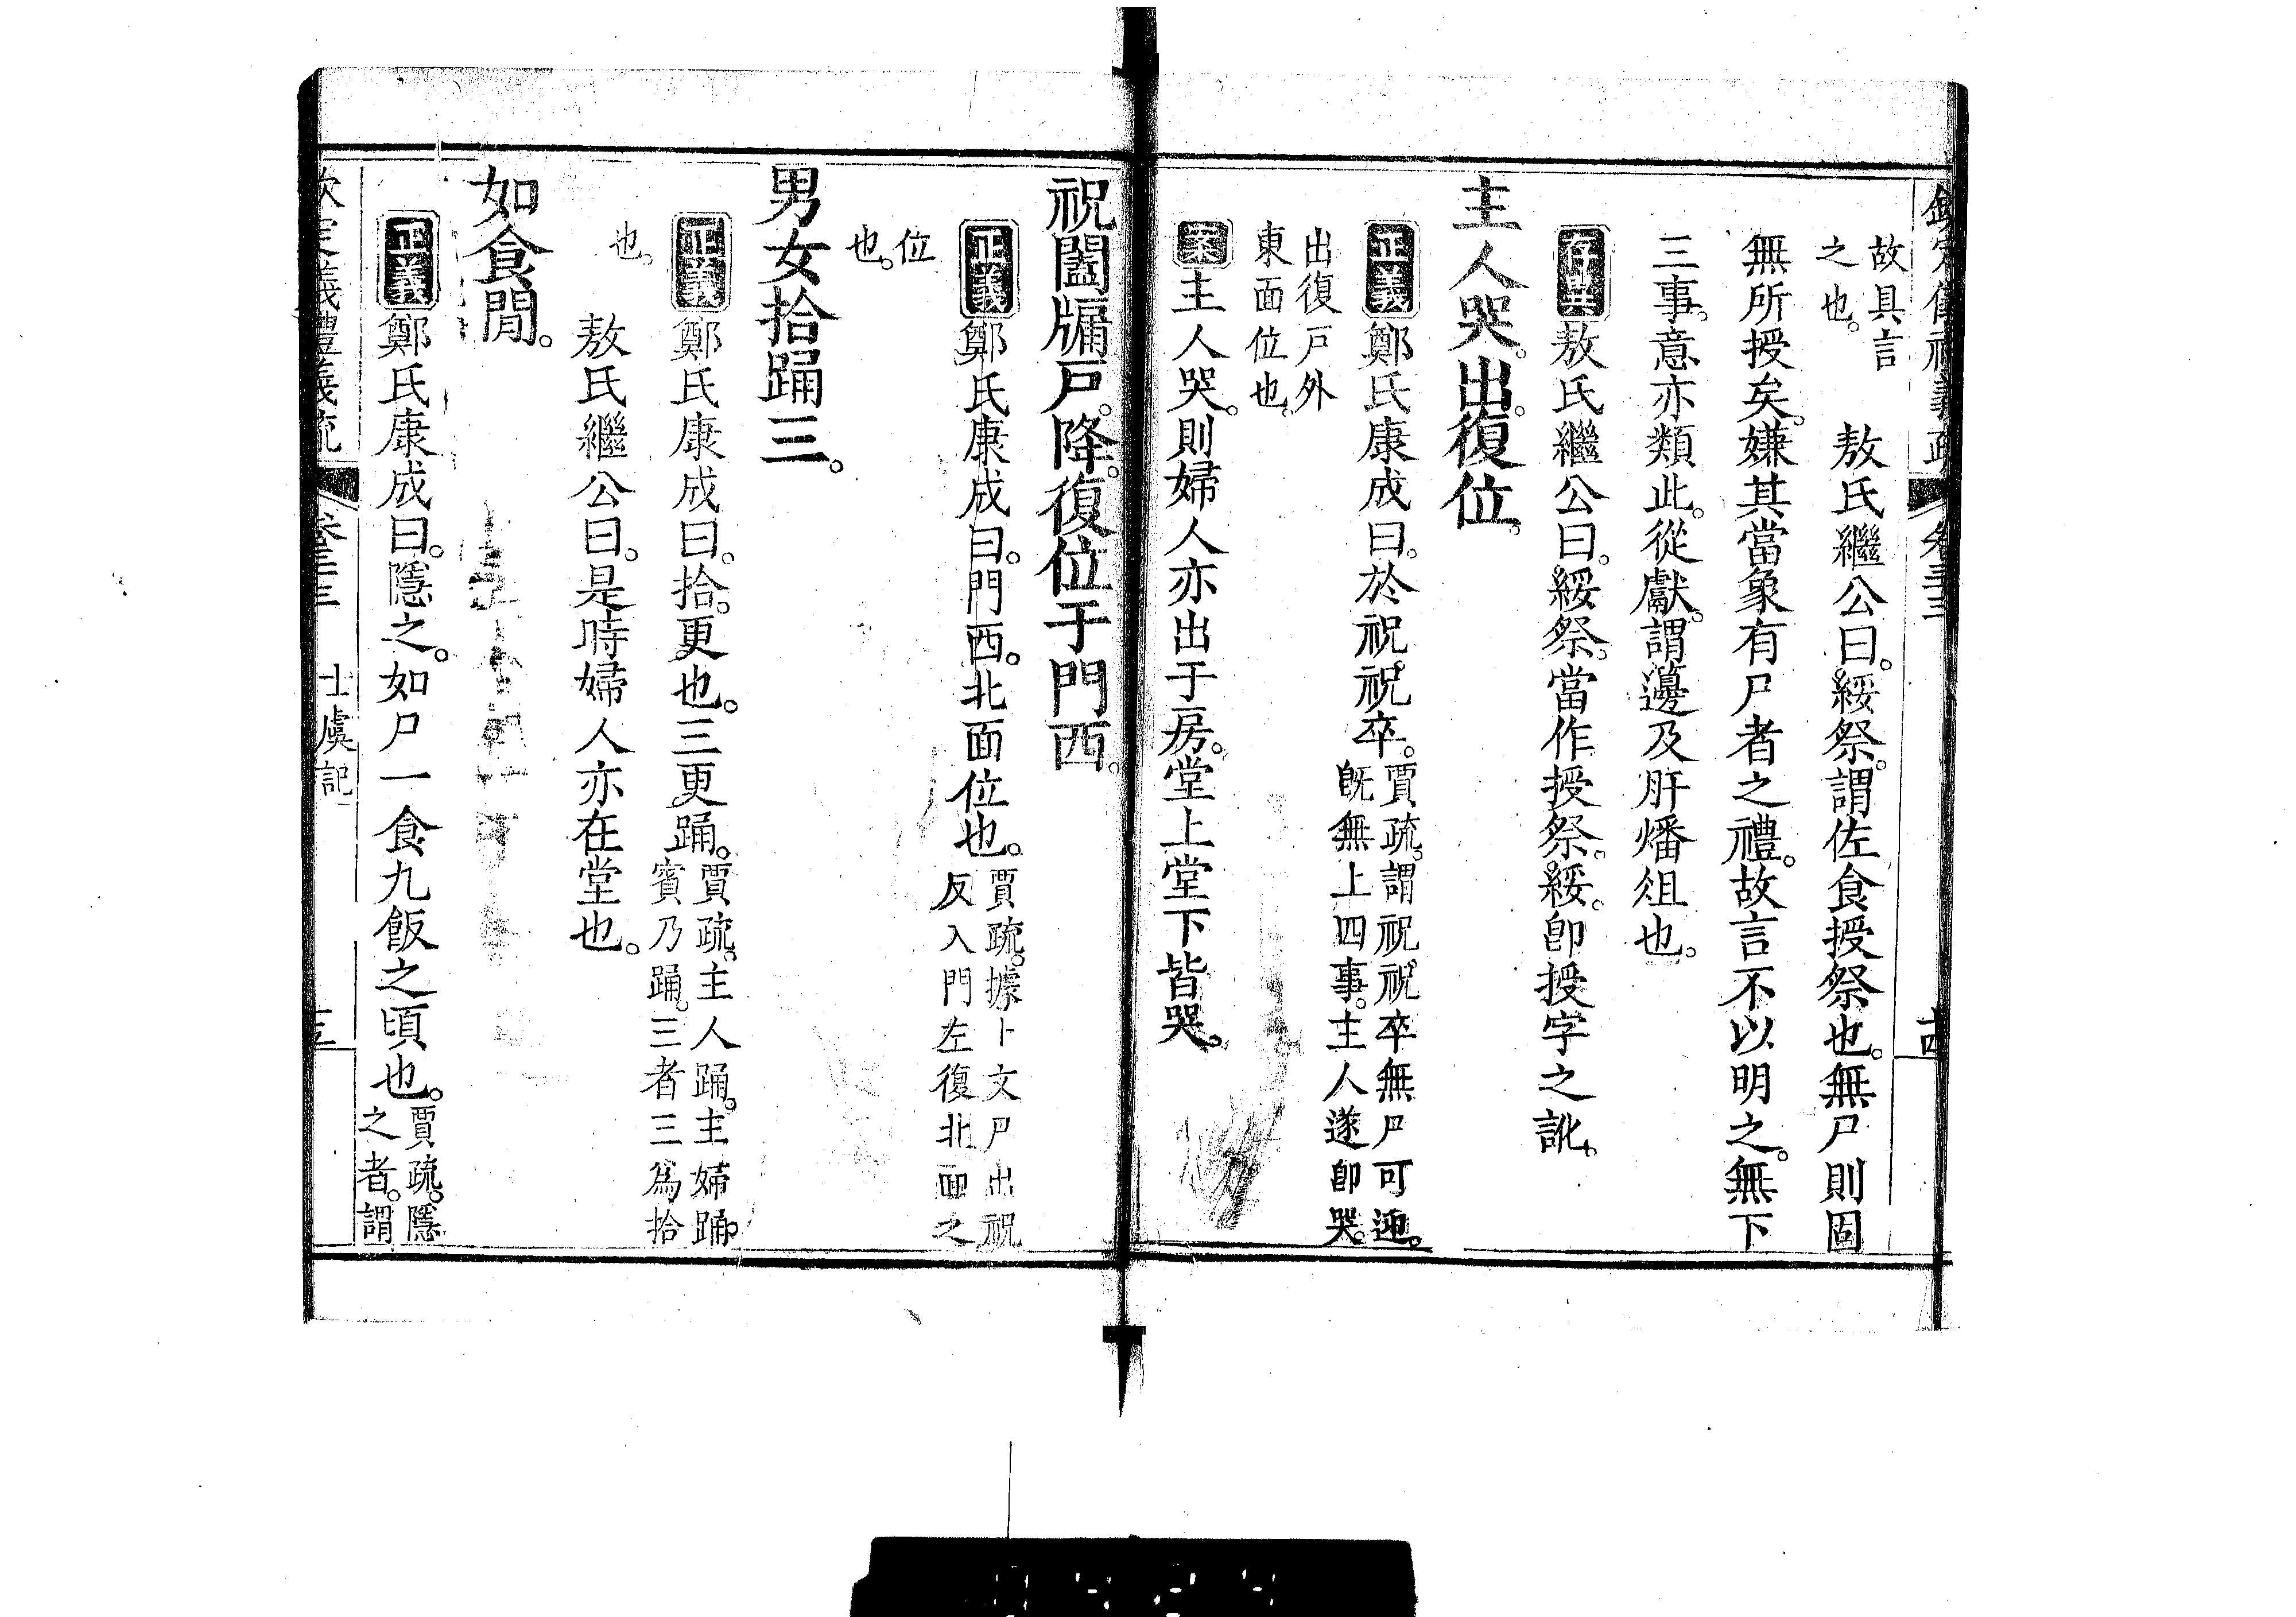 欽定儀禮義疏 卷三十三
故具言
之也。
敖氏繼公曰。綏祭。謂佐食授祭也。無尸則固
無所授矣。嫌其當象有尸者之禮。故言不以明之。無下
三事。意亦類此。從獻。謂籩及肝燔俎也。
存異 敖氏繼公曰。綏祭。當作授祭。綏。卽授字之訛。
主人哭。出。復位。
正義 鄭氏康成曰。於祝祝卒。
賈疏。謂祝祝卒無尸可迎。
旣無上四事。主人遂卽哭。
出復戸外
東面位也。
案 主人哭。則婦人亦出于房。堂上堂下皆哭。
祝闔牖戸。降。復位于門西。
正義 鄭氏康成曰。門西。北面位也。
賈疏。據上文尸出祝
反入門左復北面之
位
也。
男女拾踊三。
正義 鄭氏康成曰。拾。更也。三更踊。
賈疏。主人踊。主婦踊
賓乃踊。三者三爲拾
也。
敖氏繼公曰。是時婦人亦在堂也。
如食閒。
正義 鄭氏康成曰。隱之。如尸一食九飯之頃也。
賈疏。隱
之者。謂
欽定儀禮義疏 卷三十三 士虞記